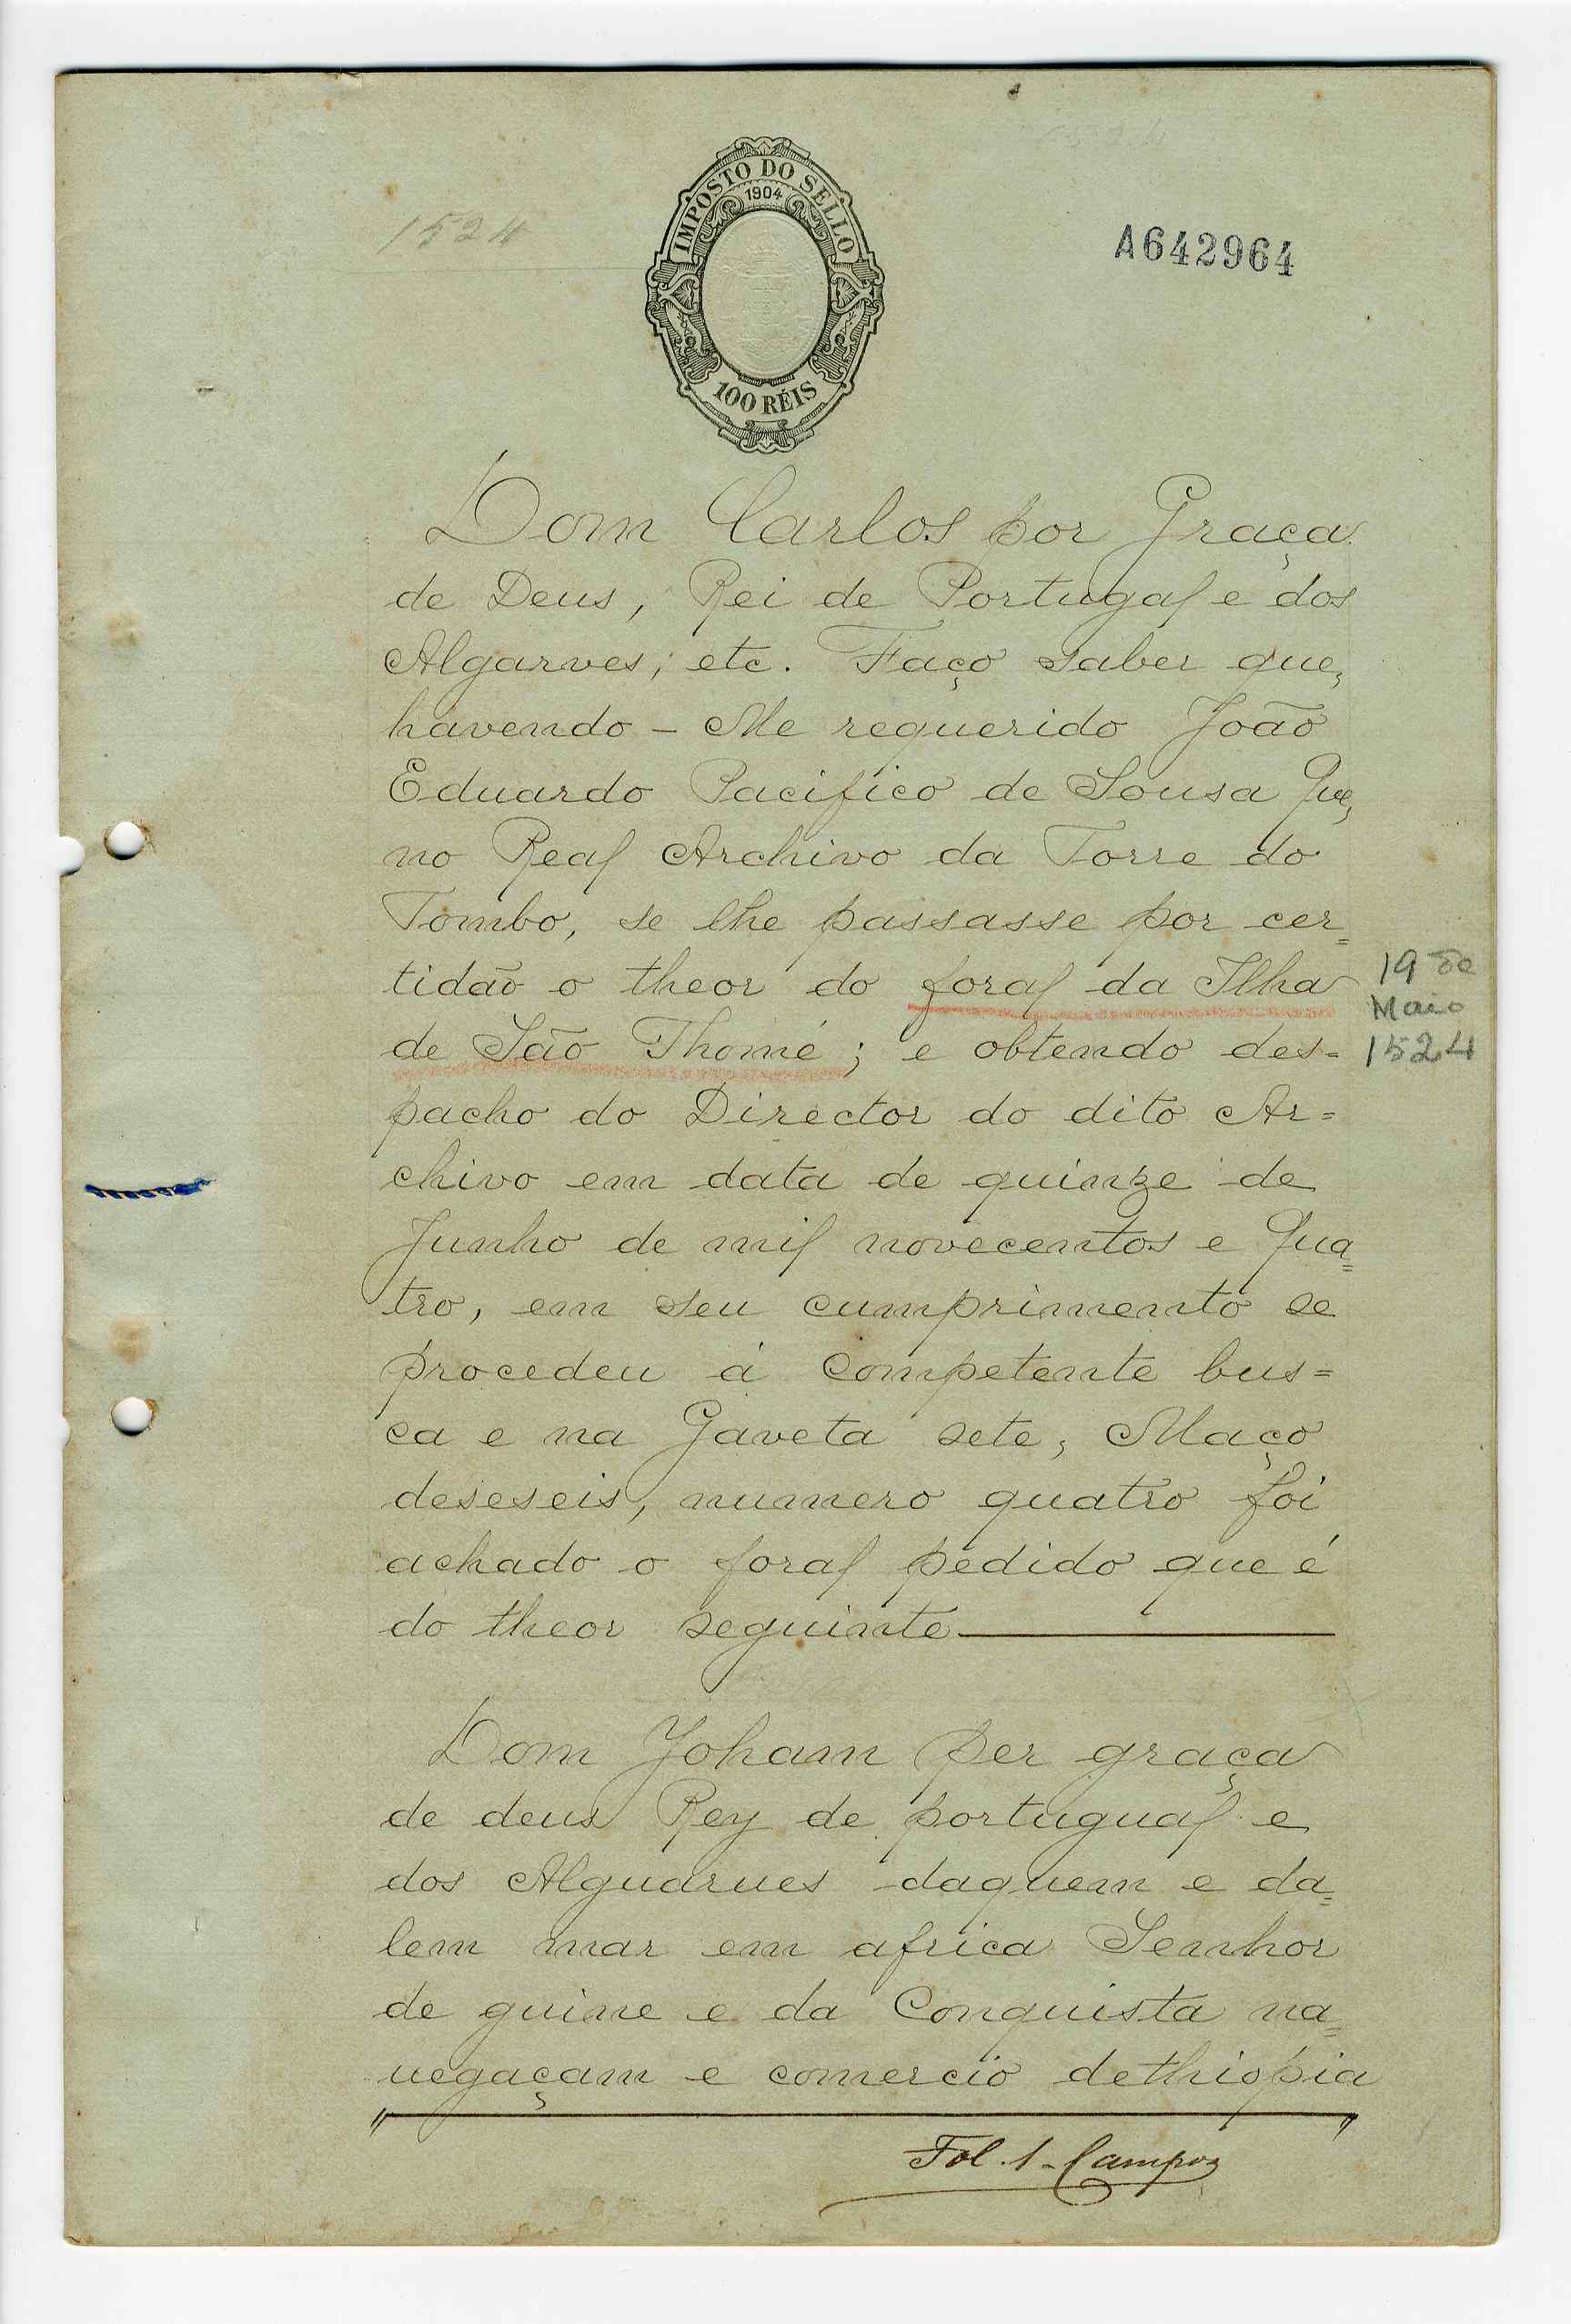 1524
IMPOSTO DO SELLO
1904
100 RÉIS
A642964
Dom Carlos por Graça
de Deus, Rei de Portugal e dos
Algarves, etc. Faço saber que,
havendo - Me requerido João
Eduardo Pacifico de Sousa que,
no Real Archivo da Torre do
Tombo, se lhe passasse por cer=
tidão o theor do foral da Ilha
de São Thomé; e obtendo des-
pacho do Director do dito Ar=
chivo em data de quinze de
Junho de mil novecentos e qua=
tro, em seu cumprimento se
procedeu á competente bus=
ca e na Gaveta sete, Maço
deseseis, numero quatro foi
achado o foral pedido que é
do theor seguinte
19 de
Maio
1524
Dom Joham per graça
de deus Rey de portugual e
dos Alguarues daquem e da=
lem mar em africa Senhor
de guine e da Conquista na=
uegaçam e comercio dethiopia
Fol. 1 - Campos